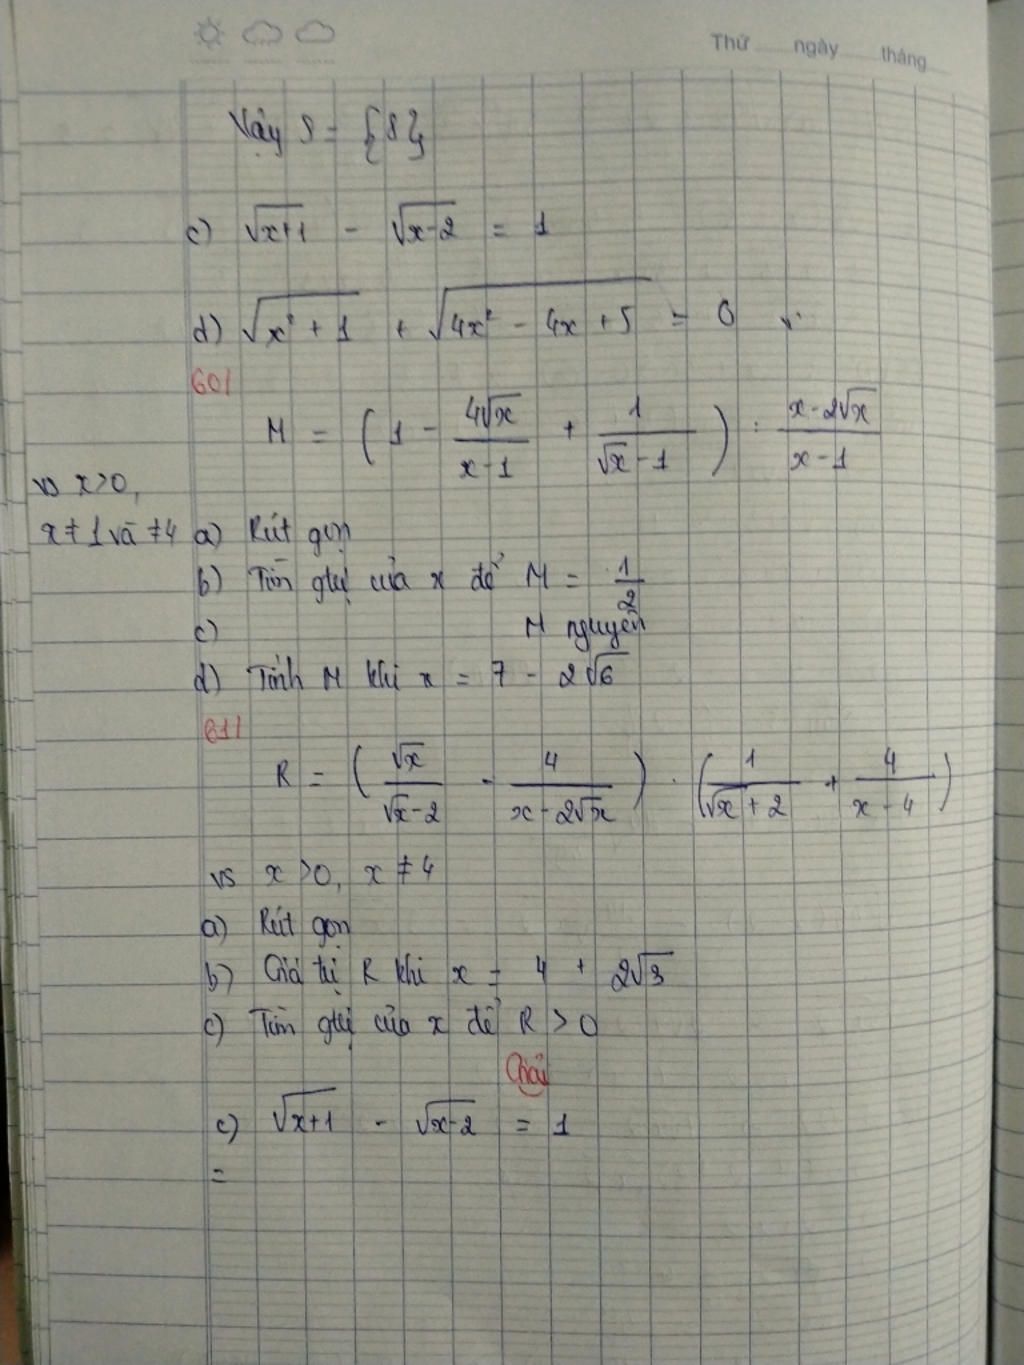 Thứ ngày tháng
Vậy S = {8}
c) √(x+1) - √(x-2) = 1
d) √(x² + 1) + √(4x² - 4x + 5) = 0 √
60/
M = (1 - 4√x/(x-1) + 1/(√x-1)) : (x-2√x)/(x-1)
vs x>0,
x≠1 và ≠4
a) Rút gọn
b) Tìm gtrị của x để M = 1/2
c) M nguyên
d) Tính M khi x = 7 - 2√6
61/
R = (√x/(√x-2) - 4/(x-2√x)) · (1/(√x+2) + 4/(x-4))
vs x>0, x≠4
a) Rút gọn
b) Giá trị R khi x = 4 + 2√3
c) Tìm gtrị của x để R > 0
Giải
c) √(x+1) - √(x-2) = 1
=